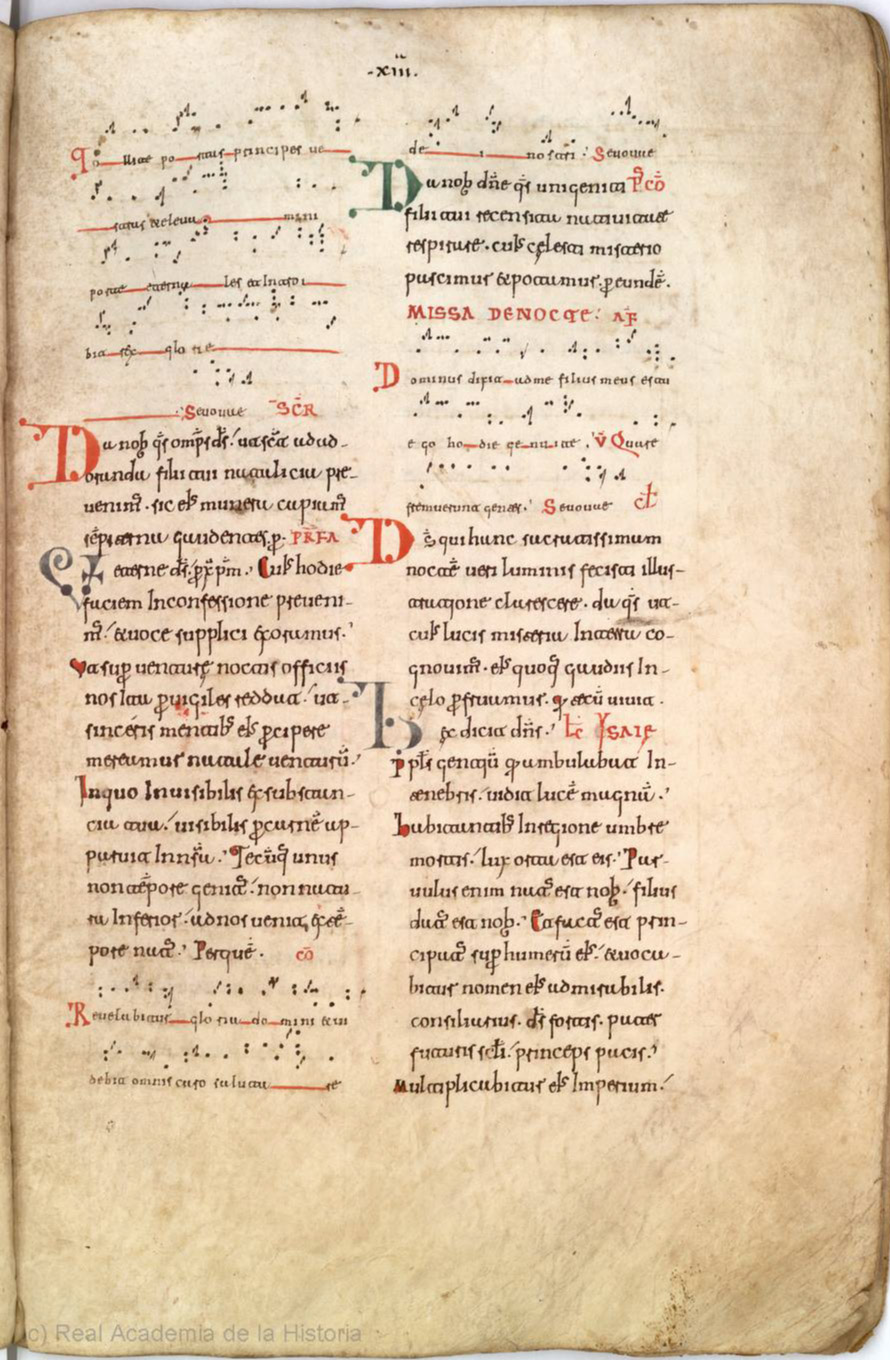 -xiii.
Tollite portas principes ue
stras & eleua mini
porte eterna les & Introi
bit rex glo rie
Seuouae SCR
Da nob qs omps ds. ut sca ad ad-
orandu filii tui natalicia pre-
uenim. sic ei munera capiam
sepiterna gaudentes. p. PREFA
eterne ds. p xpm. Cuius hodie
faciem In confessione preueni-
m. & uoce supplici exoramus.
ut sup uenture noctis officiis
nos Ita p uigiles reddat. ut
sinceris mentib ei pcipere
mereamur natale uenturu.
In quo Inuisibilis ex substan-
cia tua. uisibilis p carne ap-
paruit In nra. Tecuq unus
non tepore genit. non natu-
ra Inferior. ad nos uenit ex te-
pore nat. Per que. co
Reuelabitur gloria domini & ui
debit omnis caro saluta re
de i nostri. Seuouae
Da nob dne qs unigeniti Pco
filii tui recensita natiuitate
respirare. cuius celesti misterio
pascimur & potamur. p eunde.
MISSA DE NOCTE.
Dominus dixit ad me filius meus es tu
ego hodie genui te. V Quare
fremuerunt gentes. Seuouae
Ds qui hanc sacratissimam
nocte ueri luminis fecisti illus-
tratione clarescere. da qs ut
cuius lucis misteria In terra co-
gnouim. ei quoq gaudiis In
celo pfruamur. q tecu uiuit.
Hec dicit dns. Lc YSAIE
Ppls gentiu q ambulabat In
tenebris. uidit luce magna.
habitantib In regione umbre
mortis. lux orta est eis. Par-
uulus enim nat est nob. filius
dat est nob. Et fact est prin-
cipat sup humeru ei. & uoca-
bitur nomen ei admirabilis.
consiliarius. ds fortis. pater
futuri scli. princeps pacis.
Multiplicabitur ei Imperium.
(c) Real Academia de la Historia